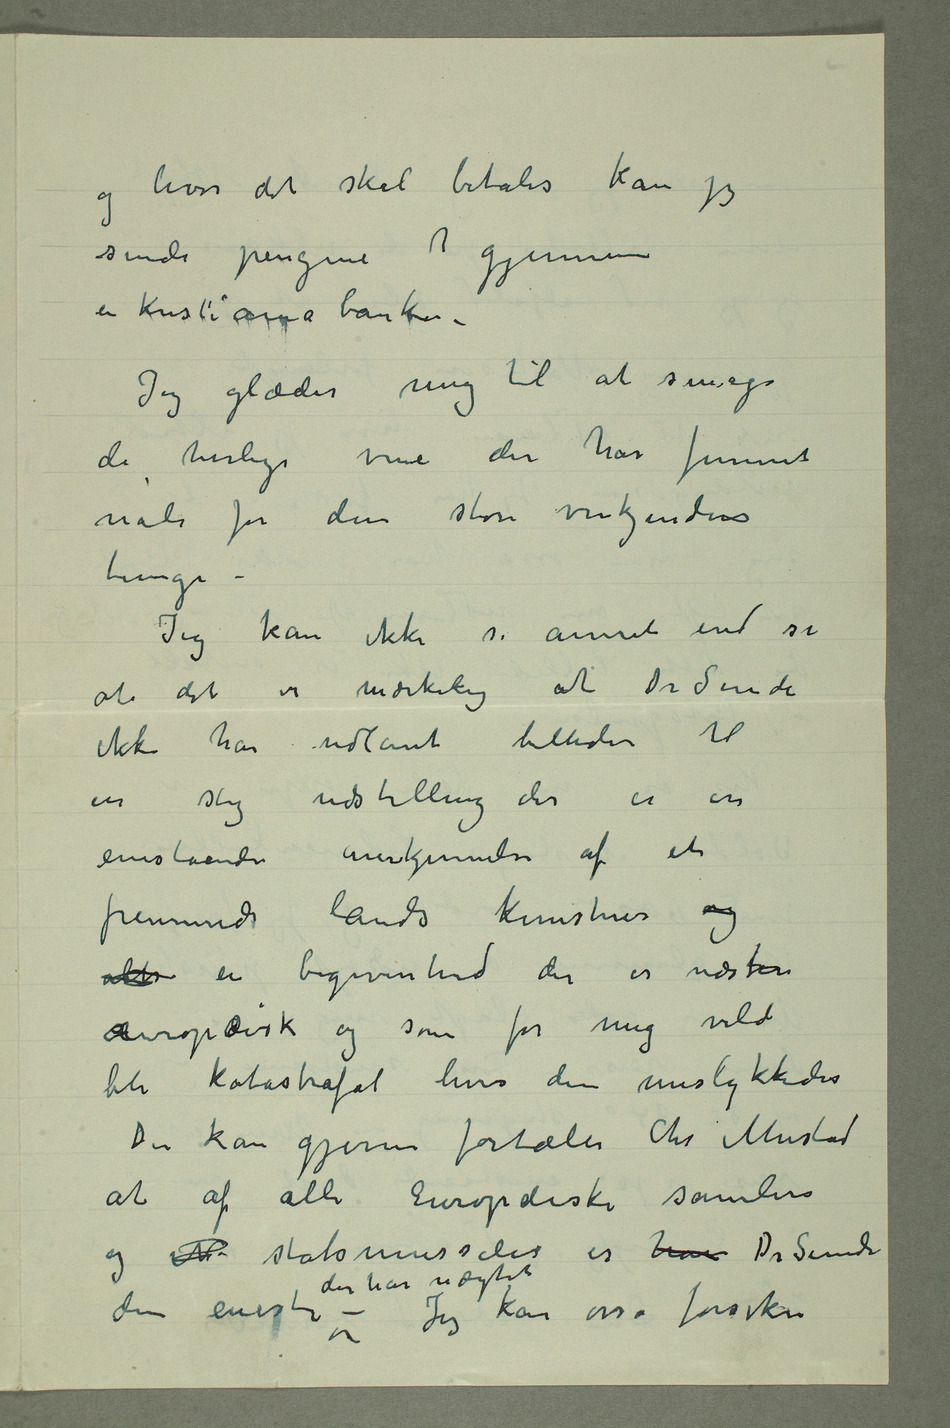 og hvor det skal betales kan jeg
sende pengene? gjennem
en Kristiania banken.
Jeg glæder mig til at smage
de herlige vine der har funnet
nåde for den store vinkjenders
tunge –
Jeg kan ikke si annet end si
at det er mærkelig at Dr Sunde
ikke har udlånt billeder til
en slig udstilling der er en
enestående anerkjennelse af et
fremmeds lands kunstner og
en begivenhed der er næsten
europæisk og som for mig vild
ble katastrofal hvis den mislykkedes
Du kan gjerne fortælle Chr Mustad
at af alle Europæiske samlere
og statsmusseer er han Dr Sunde
den eneste der har nægtet – Jeg kan osså forsikre